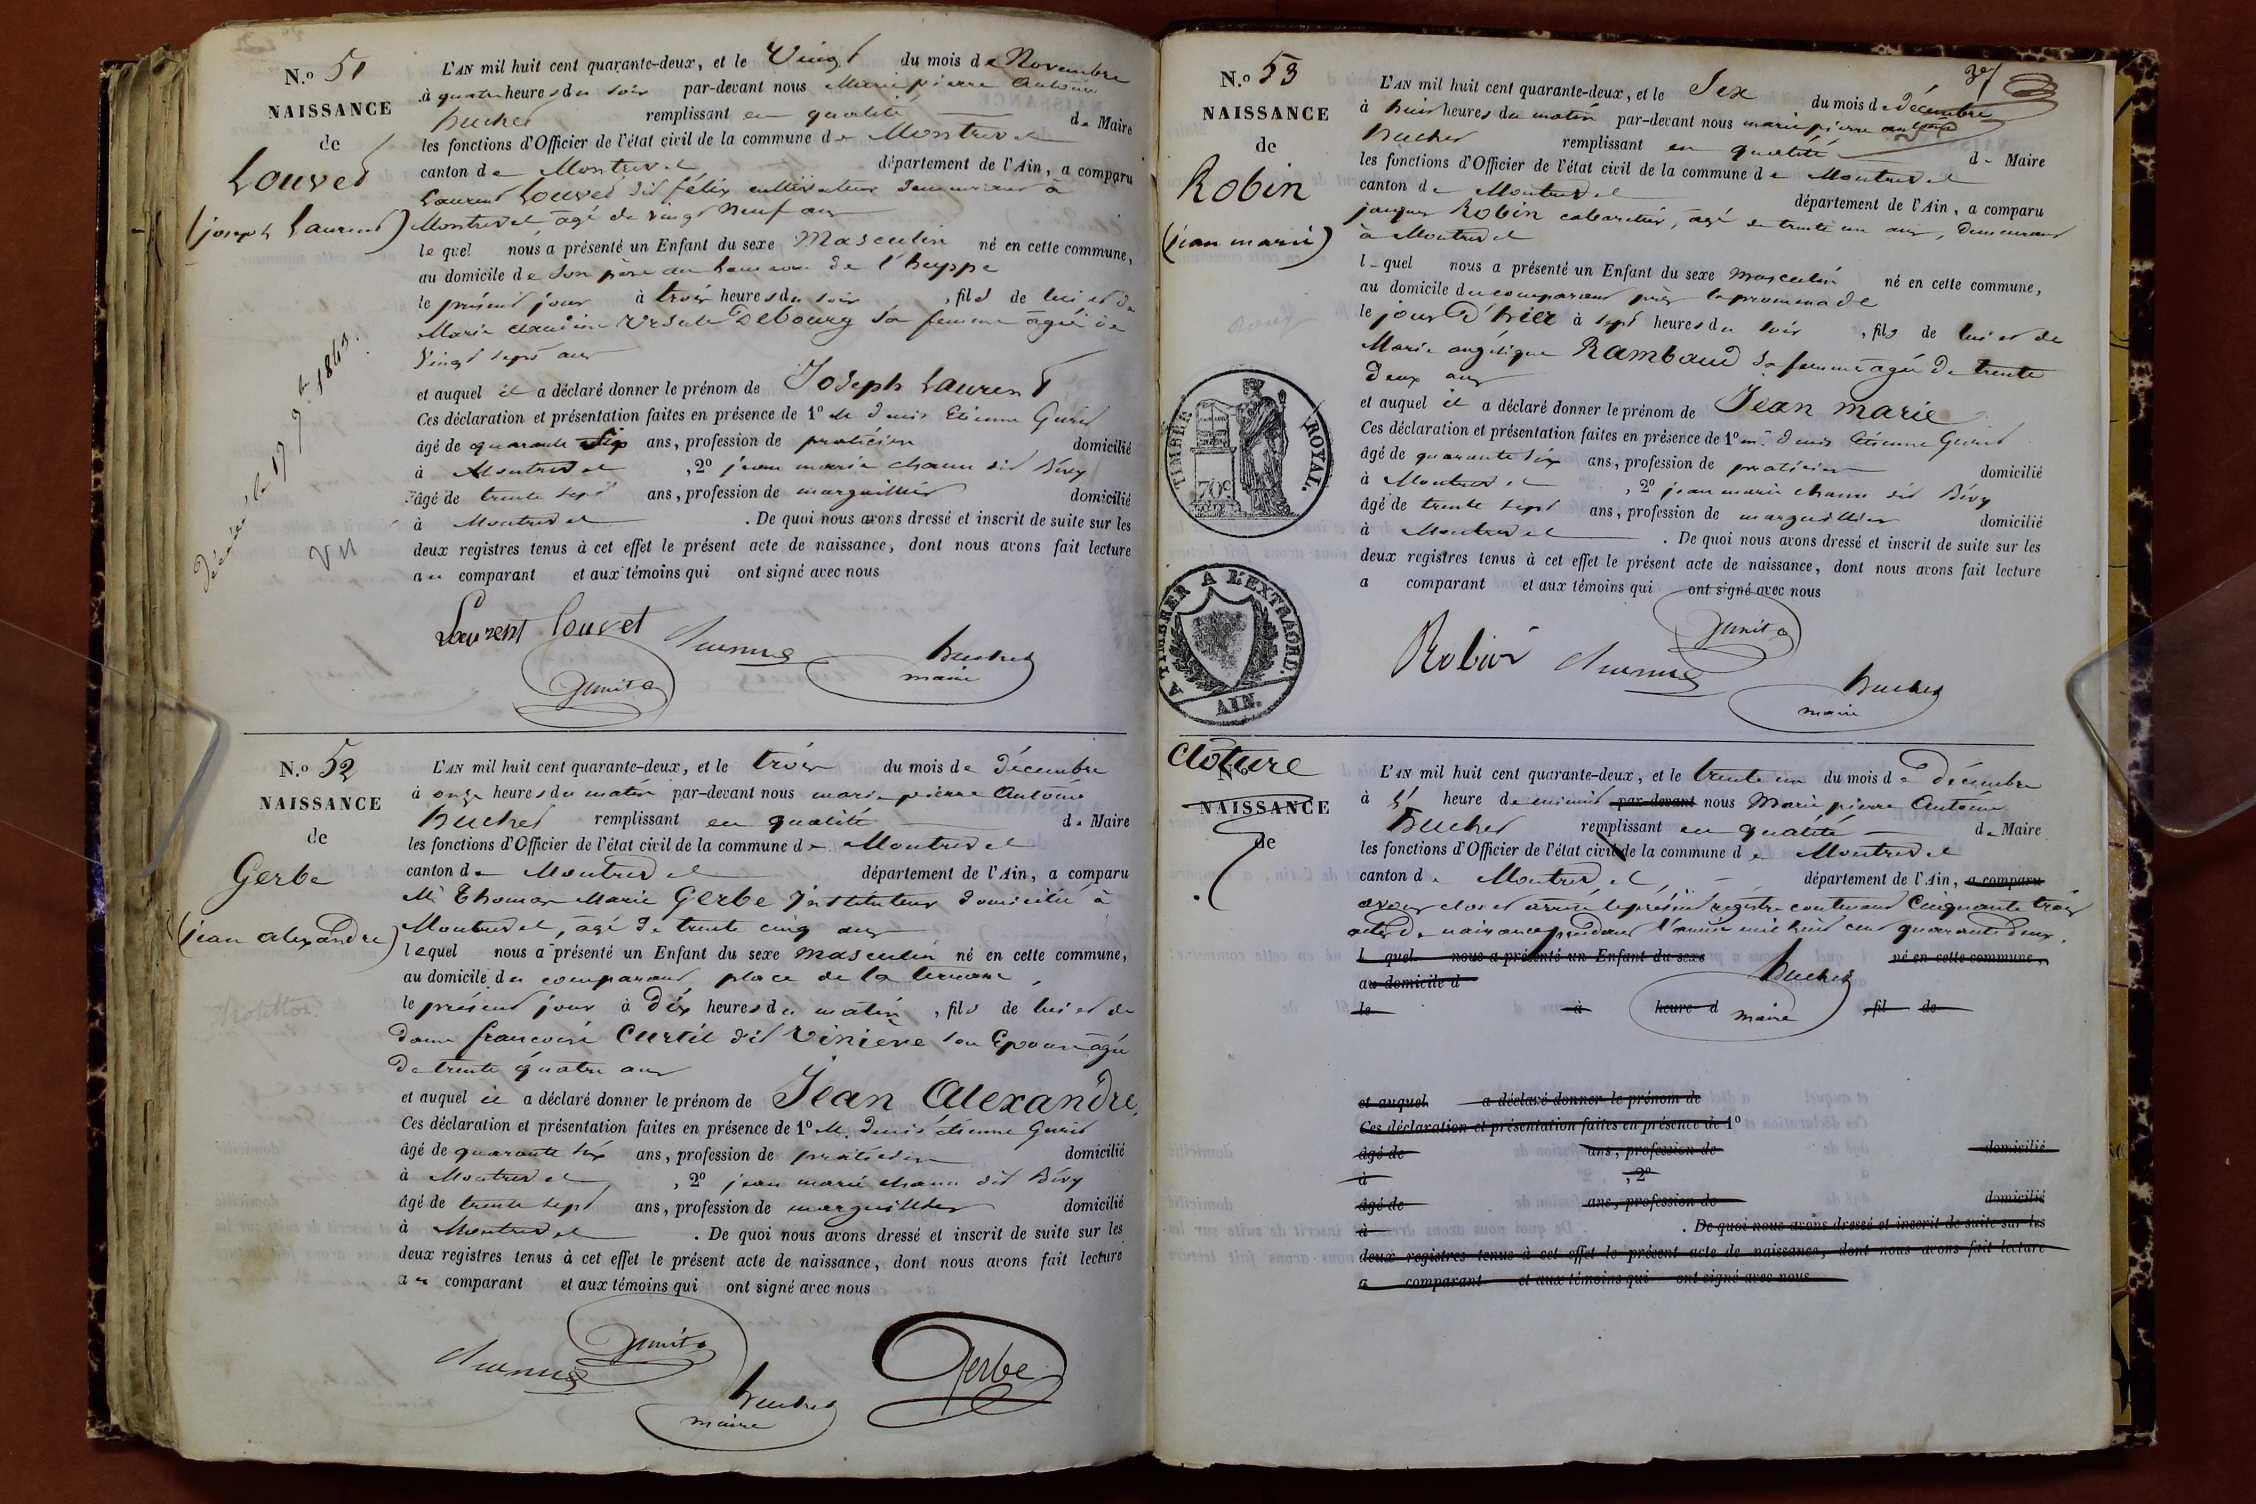 N.o 51
NAISSANCE
de
Louvet
(joseph Laurent)
L'AN mil huit cent quarante-deux, et le Vingt du mois de Novembre
à quatre heures du soir par-devant nous Marie pierre Antoine
Buchet remplissant en qualité de Maire
les fonctions d'Officier de l'état civil de la commune de Montrevel
canton de Montrevel département de l'Ain, a comparu
Laurent Louvet dit félix cultivateur demeurant à
Montrevel âgé de vingt neuf ans
lequel nous a présenté un Enfant du sexe Masculin né en cette commune,
au domicile de son père au hameau de l'huppe
le présent jour à trois heures du soir, fils de lui et de
Marie claudine Ursule Debourg sa femme âgée de
Vingt sept ans
et auquel il a déclaré donner le prénom de Joseph Laurent
Ces déclaration et présentation faites en présence de 1o M. denis Etienne
âgé de quarante six ans, profession de praticien domicilié
à Montrevel, 2o jean marie chanu dit
âgé de trente sept ans, profession de marguillier domicilié
à Montrevel. De quoi nous avons dressé et inscrit de suite sur les
deux registres tenus à cet effet le présent acte de naissance, dont nous avons fait lecture
au comparant et aux témoins qui ont signé avec nous
Laurent Louvet
Buchet
maire
N.o 52
NAISSANCE
de
Gerbe
(jean alexandre)
L'AN mil huit cent quarante-deux, et le trois du mois de décembre
à onze heures du matin par-devant nous marie pierre Antoine
Buchet remplissant en qualité de Maire
les fonctions d'Officier de l'état civil de la commune de Montrevel
canton de Montrevel département de l'Ain, a comparu
Mr Thomas Marie Gerbe Instituteur domicilié à
Montrevel, âgé de trente cinq ans
lequel nous a présenté un Enfant du sexe masculin né en cette commune,
au domicile du comparant, place de la
le présent jour à dix heures du matin, fils de lui et de
dame françoise Curtil dit Vinière son Epouse âgée
de trente quatre ans
et auquel il a déclaré donner le prénom de Jean Alexandre,
Ces déclaration et présentation faites en présence de 1o M. denis étienne
âgé de quarante six ans, profession de praticien domicilié
à Montrevel, 2o jean marie chanu dit
âgé de trente sept ans, profession de marguillier domicilié
à Montrevel. De quoi nous avons dressé et inscrit de suite sur les
deux registres tenus à cet effet le présent acte de naissance, dont nous avons fait lecture
au comparant et aux témoins qui ont signé avec nous
Buchet
maire
Gerbe
N.o 53
NAISSANCE
de
Robin
(jean marie)
TIMBRE ROYAL.
70c
A TIMBRER A L'EXTRAORD.
AIN.
L'AN mil huit cent quarante-deux, et le Six du mois de décembre
à huit heures du matin par-devant nous marie pierre antoine
Buchet remplissant en qualité de Maire
les fonctions d'Officier de l'état civil de la commune de Montrevel
canton de Montrevel département de l'Ain, a comparu
jacques Robin cabaretier, âgé de trente un ans, demeurant
à Montrevel
l quel nous a présenté un Enfant du sexe masculin né en cette commune,
au domicile du comparant près la promenade
le jour d'hier à sept heures du soir, fils de lui et de
Marie angélique Rambaud sa femme âgée de trente
deux ans
et auquel il a déclaré donner le prénom de Jean marie
Ces déclaration et présentation faites en présence de 1o mr denis étienne
âgé de quarante six ans, profession de praticien domicilié
à Montrevel, 2o jean marie chanu dit
âgé de trente sept ans, profession de marguillier domicilié
à Montrevel. De quoi nous avons dressé et inscrit de suite sur les
deux registres tenus à cet effet le présent acte de naissance, dont nous avons fait lecture
a comparant et aux témoins qui ont signé avec nous
Robin
Buchet
maire
cloture
N.o
NAISSANCE
de
L'AN mil huit cent quarante-deux, et le trente un du mois de décembre
à heure de minuit par-devant nous Marie pierre Antoine
Buchet remplissant en qualité de Maire
les fonctions d'Officier de l'état civil de la commune de Montrevel
canton de Montrevel département de l'Ain, a comparu
avons clos et arrêté le présent registre contenant Cinquante trois
actes de naissance pendant l'année mil huit cent quarante deux.
l quel nous a présenté un Enfant du sexe né en cette commune,
au domicile d
Buchet
le à heure d, fil de
maire
et auquel a déclaré donner le prénom de
Ces déclaration et présentation faites en présence de 1o
âgé de ans, profession de domicilié
à, 2o
âgé de ans, profession de domicilié
à. De quoi nous avons dressé et inscrit de suite sur les
deux registres tenus à cet effet le présent acte de naissance, dont nous avons fait lecture
a comparant et aux témoins qui ont signé avec nous